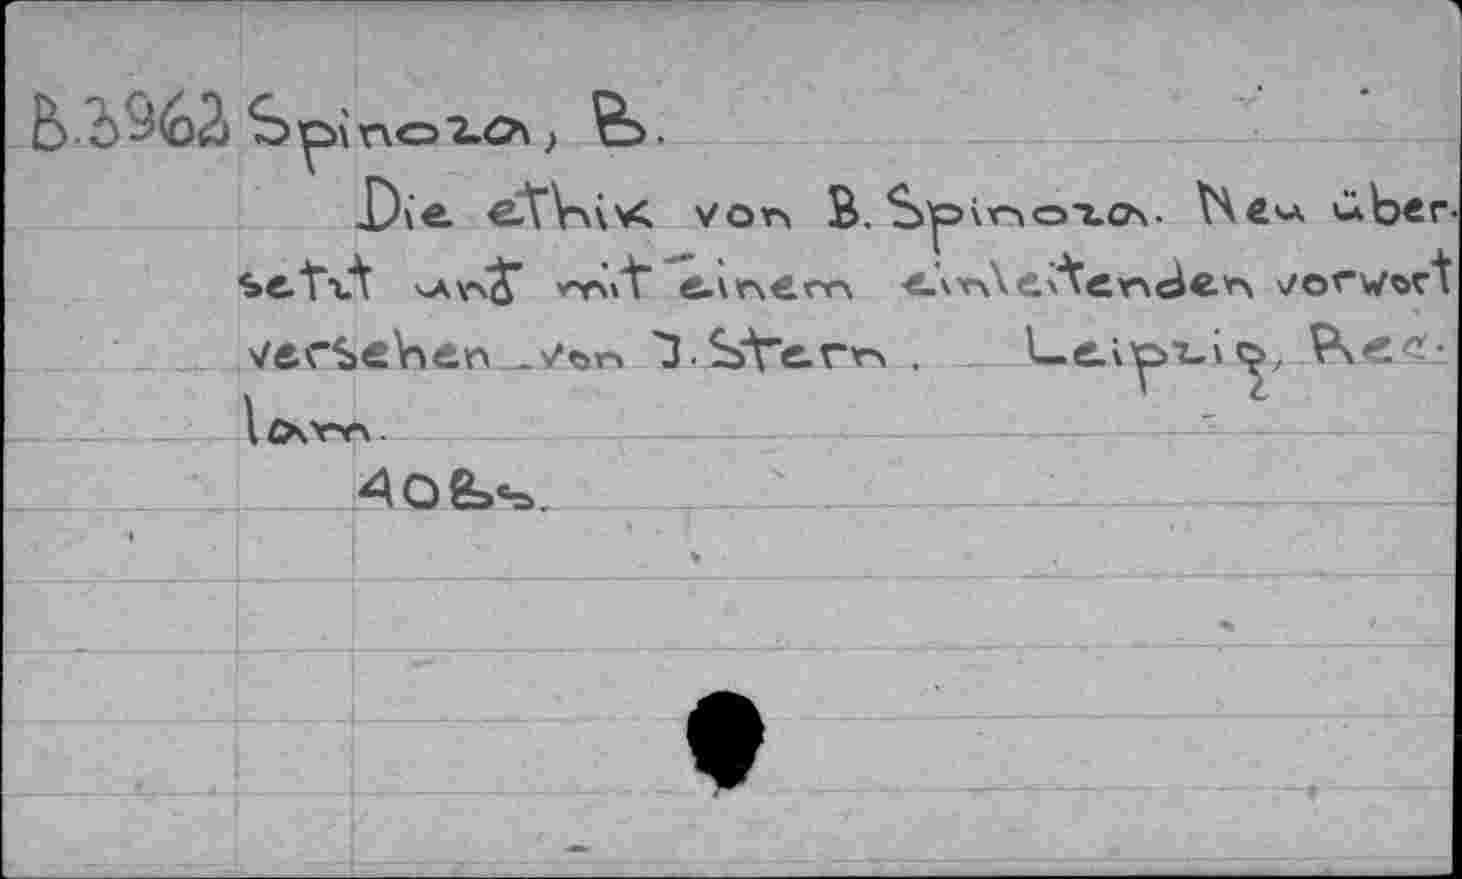 B.3962 Spinoza, B.
Die eThik von B. Spinoza. Neu über-
setzt und mit einem einleitenden vorwort
versehen von J. Stern. Leipzig, Rec-
lam.
408 s.